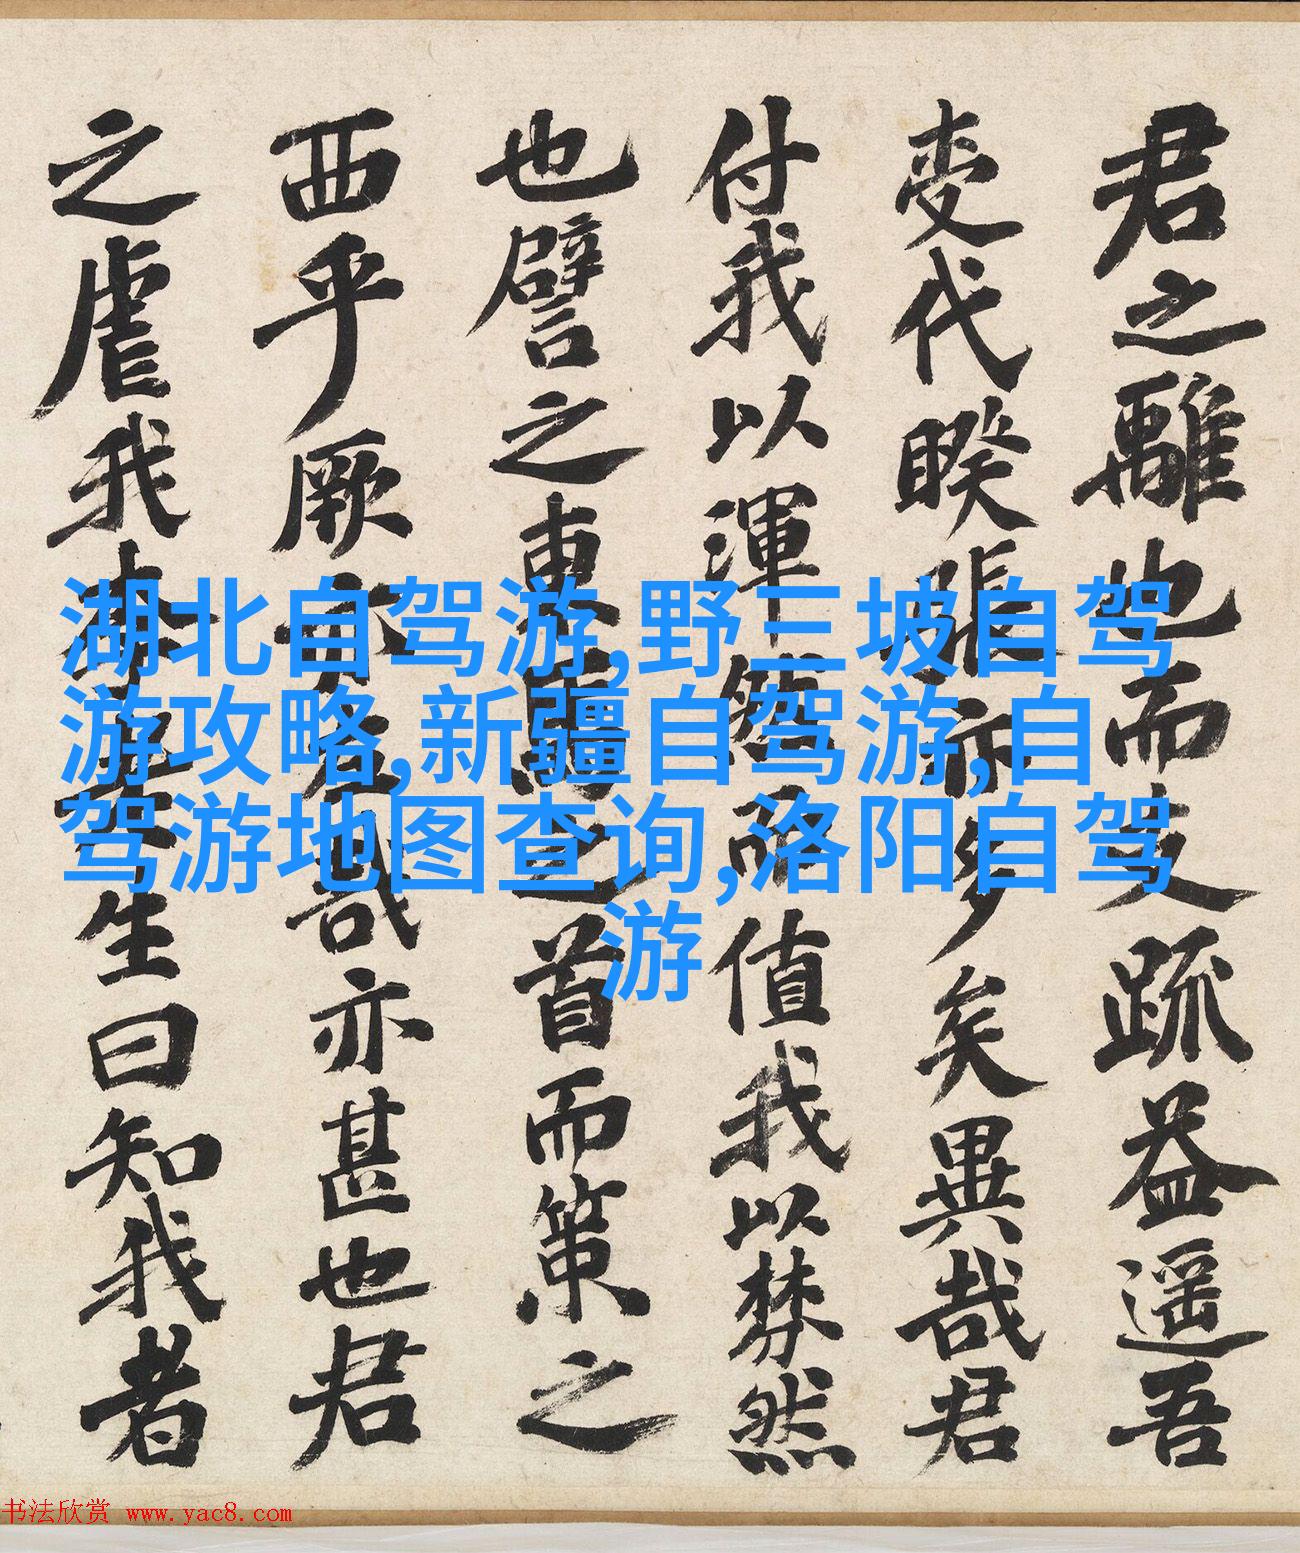 君之離也而疏益遥吾
代睽張亦多矣異哉君
付我以渾而值我以棼然
也譬之東馬之首而策之
西乎厥亦左哉亦甚也君
之虐我生曰知我者
湖北自驾游,野三坡自驾
游攻略,新疆自驾游,自
驾游地图查询,洛阳自驾
游
书法欣赏 www.yac8.com